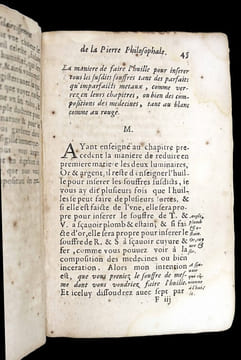 de la Pierre Philosophale. 45
La maniere de faire l'huille pour inserer
tous les susdits souffres tant des parfaits
qu'imparfaits metaux, comme ver-
rez en leurs chapitres, ou bien des com-
positions des medecines, tant au blanc
comme au rouge.
M.
AYant enseigné au chapitre pre-
cedent la maniere de reduire en
premiere matiere les deux luminaires,
Or & argent, il reste d'enseigner l'huil-
le pour inserer les souffres susdicts, ie
vous ay dit plusieurs fois que l'huil-
les se peut faire de plusieurs sortes, &
si elle est faicte de l'vne, elle sera pro-
pre pour inserer le souffre de T. &
V. à sçauoir plomb & estain, & si fai-
cte d'or, elle sera propre pour inserer le
souffre de R. & S à sçauoir cuyure &
fer, comme vous pouuez voir à la
composition des medecines ou bien
inceration. Alors mon intention
est, que vous preniez le souffre de mes-
me dont vous voudriez faire l'huille.
Et iceluy dissoudrez auec sept par
F iij